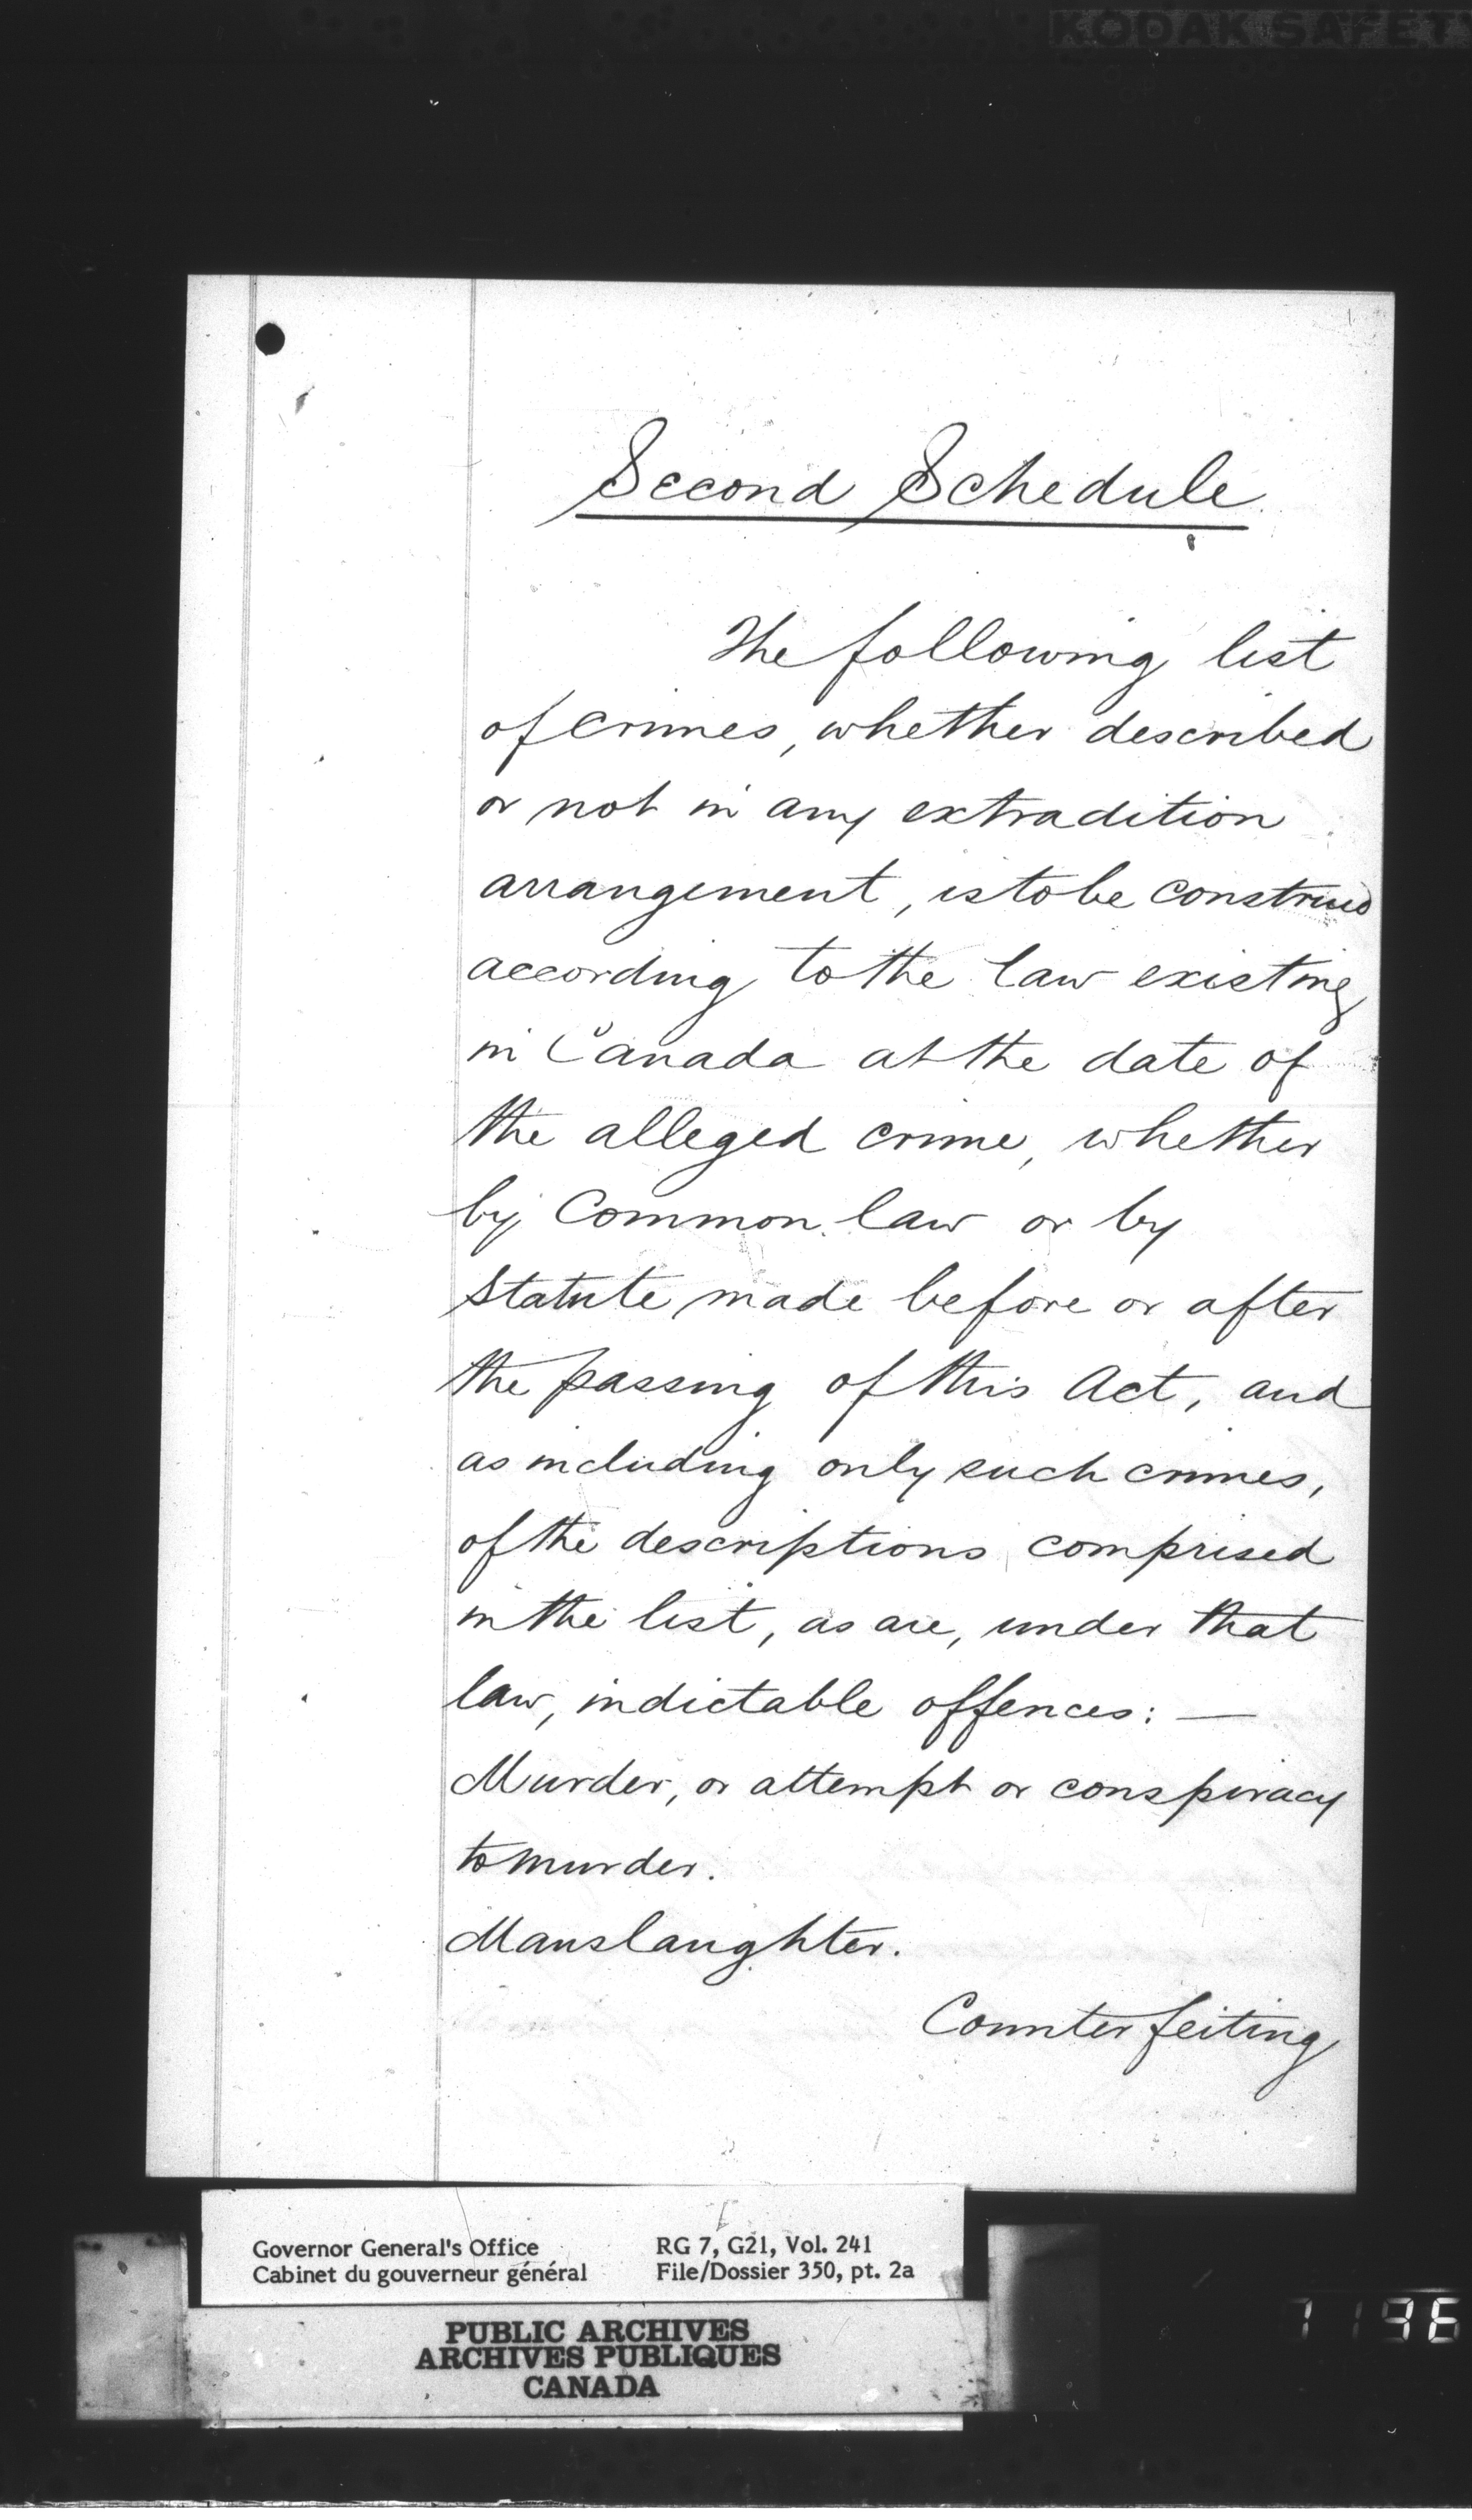 KODAK SAFETY
Second Schedule
The following list
of crimes, whether described
or not in any extradition
arrangement, is to be construed
according to the law existing
in Canada at the date of
the alleged crime, whether
by Common law or by
Statute made before or after
the passing of this Act, and
as including only such crimes,
of the descriptions comprised
in the list, as are, under that
law, indictable offences: —
Murder, or attempt or conspiracy
to murder.
Manslaughter.
Counterfeiting
Governor General's Office
Cabinet du gouverneur général
RG 7, G21, Vol. 241
File/Dossier 350, pt. 2a
PUBLIC ARCHIVES
ARCHIVES PUBLIQUES
CANADA